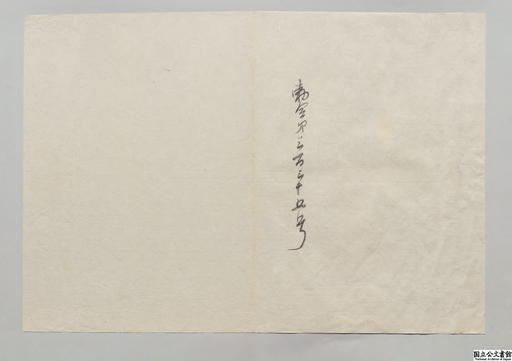 勅令第三百三十五号
国立公文書館
National Archives of Japan